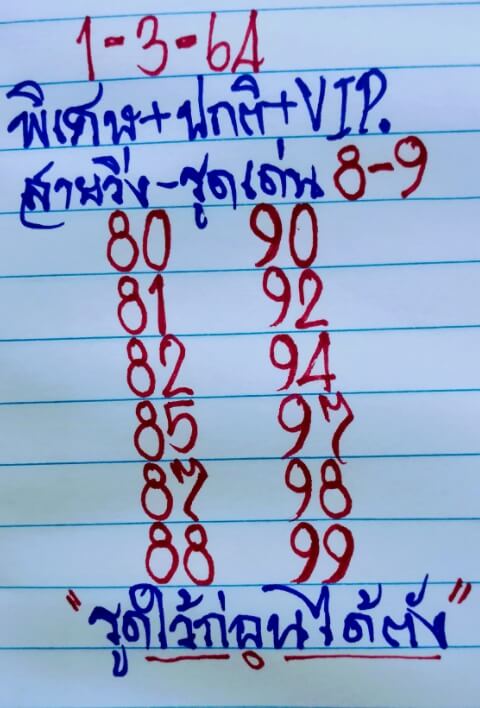 1-3-64
พิเศษ+ปกติ+VIP.
สายวิ่ง-ชุดเด่น 8-9
80 90
81 92
82 94
85 97
87 98
88 99
"รูดไว้ก่อนได้ตัง"